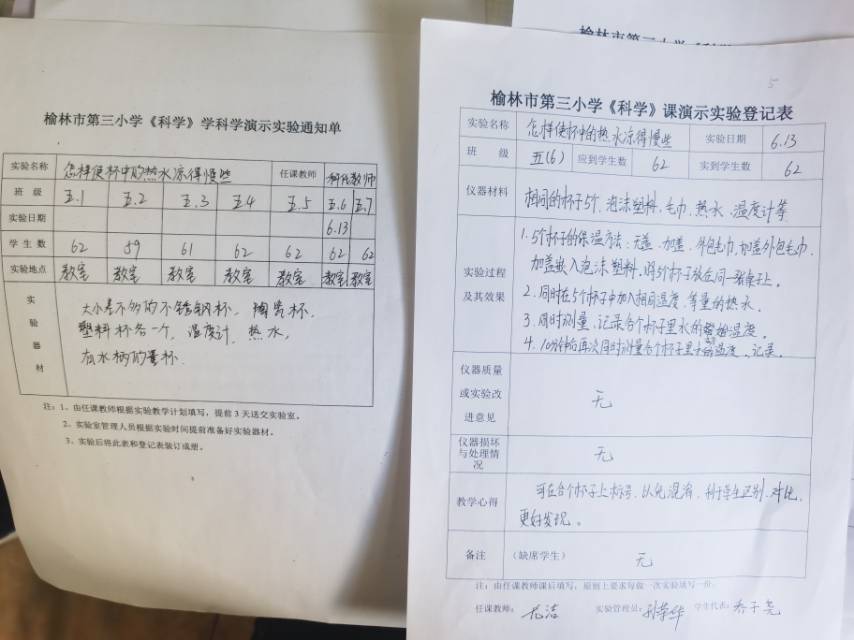 榆林市第三小学《科学》学科学演示实验通知单
实验名称 怎样使杯中的热水凉得慢些 任课教师 科代教师
班 级 五.1 五.2 五.3 五4 五.5 五.6 五.7
实验日期 6.13
学 生 数 62 59 61 62 62 62 62
实验地点 教室 教室 教室 教室 教室 教室 教室
实验器材
大小差不多的不锈钢杯、陶瓷杯、
塑料杯各一个,温度计、热水,
有水柄的量杯.
注:1、由任课教师根据实验教学计划填写,提前 3 天送交实验室。
2、实验室管理人员根据实验时间提前准备好实验器材。
3、实验后将此表和登记表装订成册。
5
榆林市第三小学《科学》课演示实验登记表
实验名称 怎样使杯中的热水凉得慢些 实验日期 6.13
班 级 五(6) 应到学生数 62 实到学生数 62
仪器材料 相同的杯子5个、泡沫塑料、毛巾、热水、温度计等
实验过程及其效果
1.5个杯子的保温方法:无盖、加盖、外包毛巾、加盖外包毛巾、
加盖嵌入泡沫塑料,将5个杯子放在同一张桌子上。
2.同时在5个杯子中加入相同温度、等量的热水。
3.同时测量、记录各个杯子里水的温度。
4.10分钟后再次同时测量各个杯子里水的温度、记录。
仪器质量或实验改进意见 无
仪器损坏与处理情况 无
教学心得 可在各个杯子上标号,以免混淆,利于学生区别、对比,
更好发现。
备注 (缺席学生) 无
注:由任课教师课后填写,原则上要求每做一次实验填写一份。
任课教师: 实验管理员:孙荣华 学生代表:乔子尧